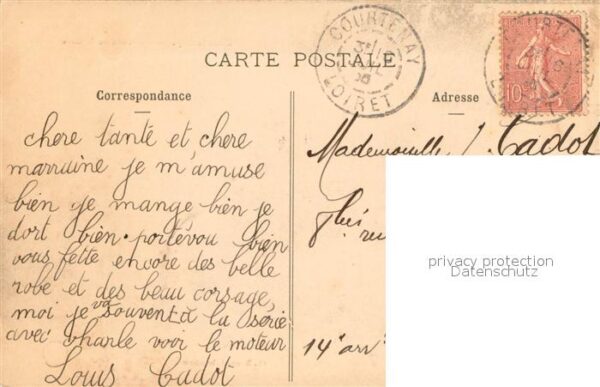 CARTE POSTALE
COURTENAY
LOIRET
10
Correspondance
Adresse
chere tante et chere
marraine je m'amuse
bien je mange bien je
dort bien. portévou bien
vous fette encore des belle
robe et des beau corsage,
moi je vas souvent à la série
avec charle voir le moteur
Louis Cadot
Mademoiselle J. Cadot
14e arr
privacy protection
Datenschutz